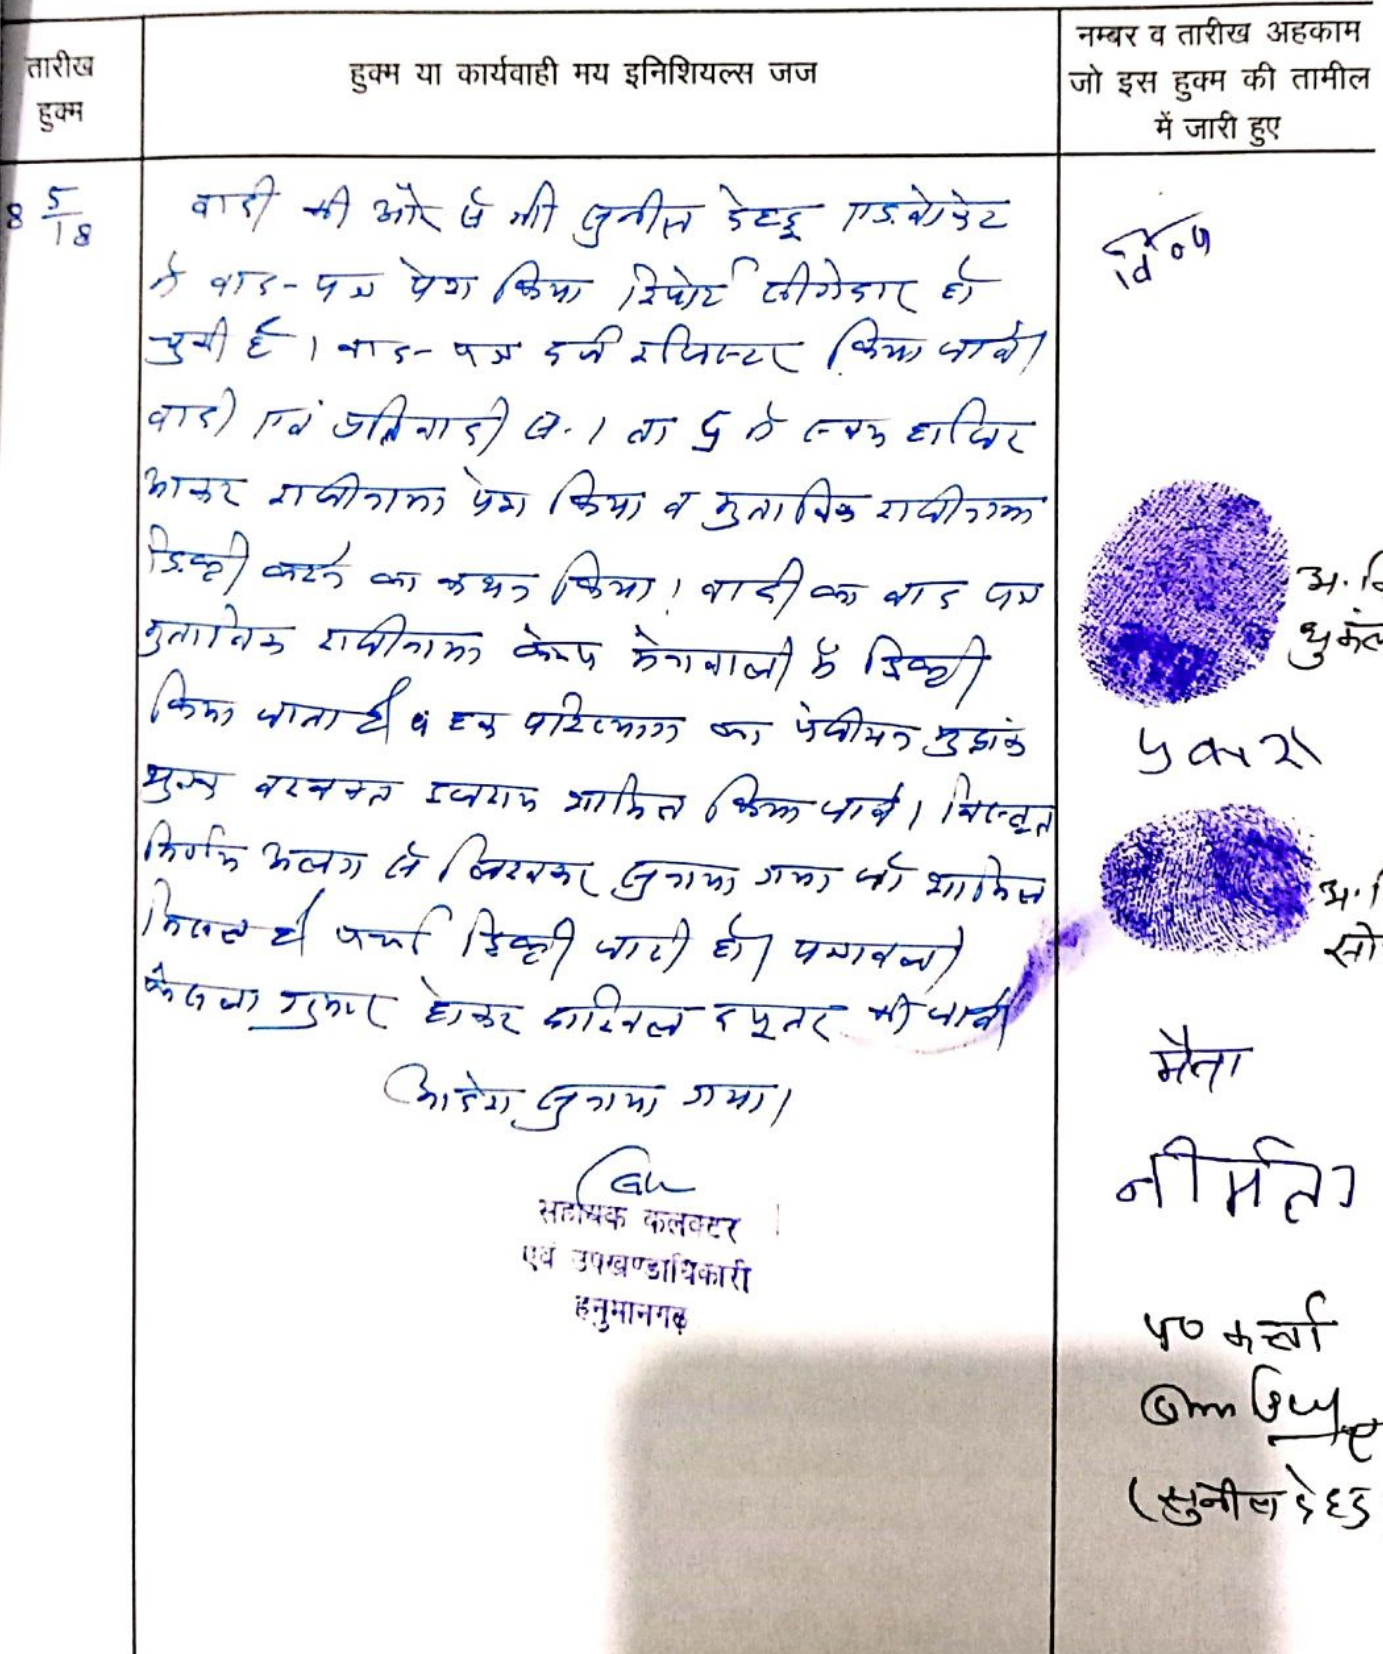 तारीख
हुक्म
हुक्म या कार्यवाही मय इनिशियल्स जज
नम्बर व तारीख अहकाम
जो इस हुक्म की तामील
में जारी हुए
8 5/18
वादी की और से श्री सुनील देहडू एडवोकेट
ने वाद-पत्र पेश किया रिपोर्ट रीगेडार हो
चुकी है। वाद-पत्र दर्ज रजिस्टर किया जावे।
वादी एवं प्रतिवादी स. 1 ता 5 ने स्वयं हाजिर
आकर राजीनामा पेश किया व मुताबिक राजीनामा
डिक्री करने का कथन किया। वादी का वाद पत्र
मुताबिक राजीनामा केम्प में डिक्री
किया जाता है व हक परित्याग का मुद्रांक
शुल्क इजराय शामिल किया जावे। विस्तृत
निर्णय अलग से लिखकर सुनाया गया जो शामिल
मिसल है पर्चा डिक्री जारी हो। पत्रावली
फैसला शुमार होकर दाखिल दफ्तर की जावे।
आदेश सुनाया गया।
सहायक कलक्टर
एवं उपखण्डाधिकारी
हनुमानगढ़
अ. नि
अ. नि
सो
मैना
नीर्मला
(सुनील देहडू